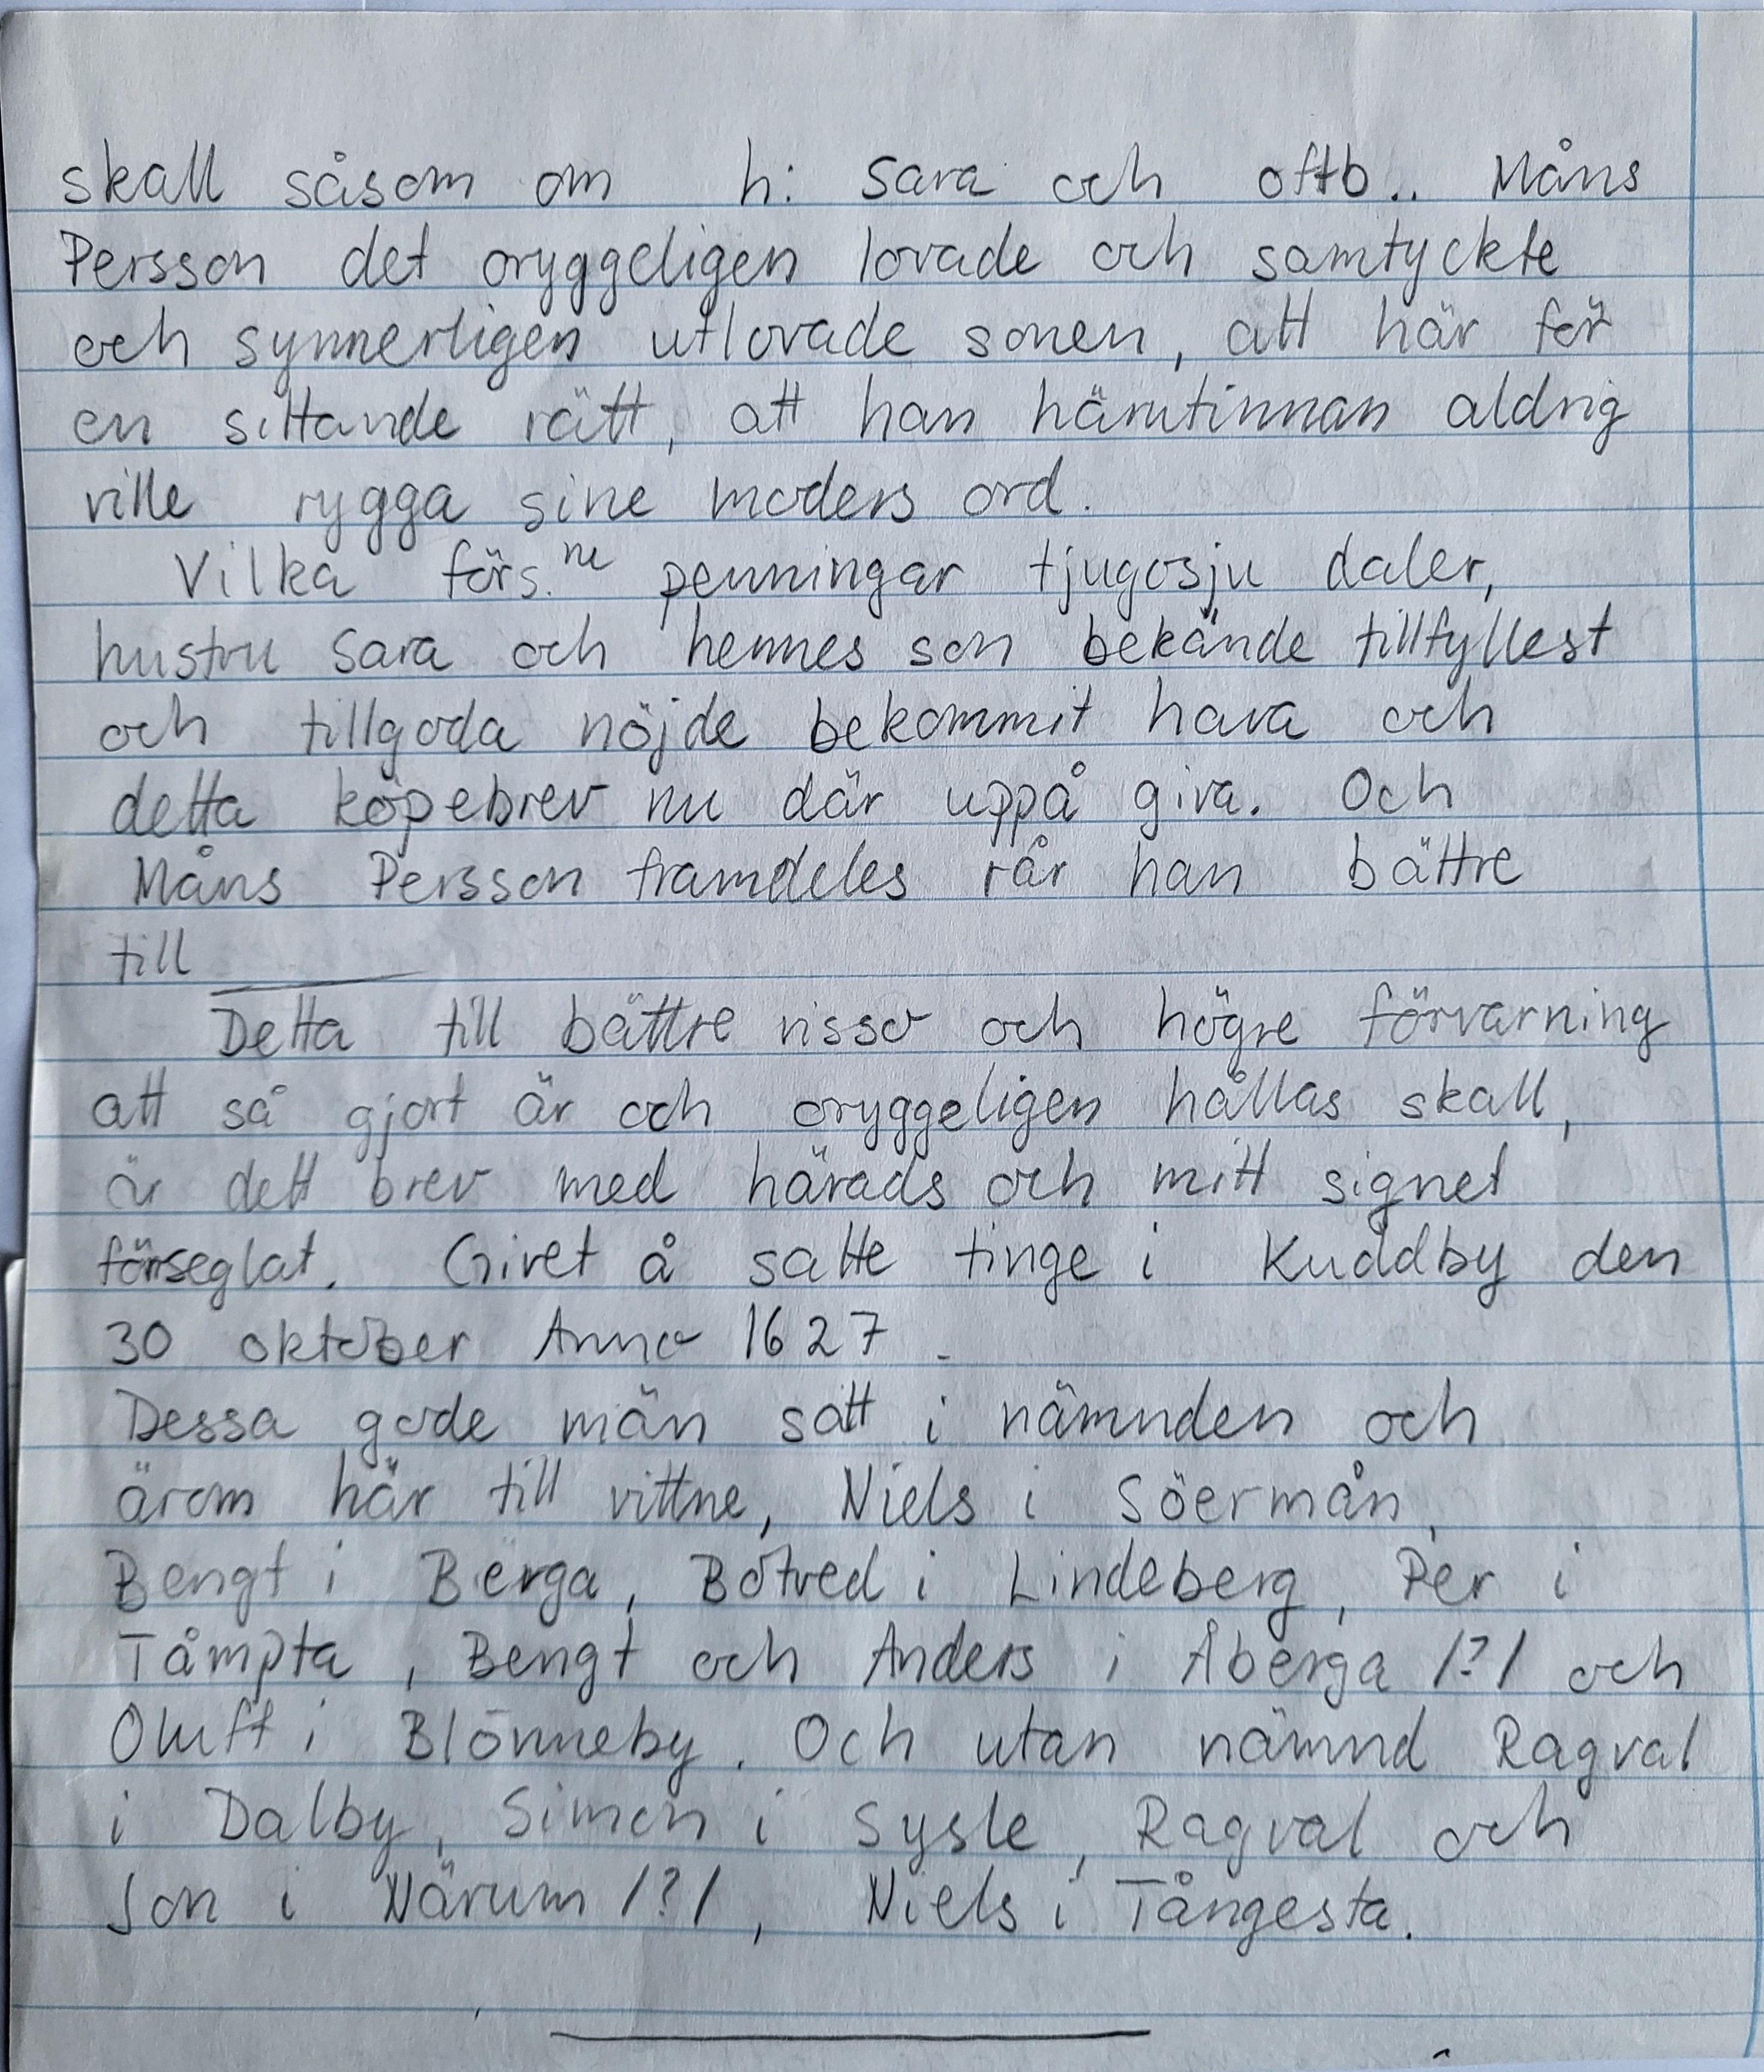 skall såsom om h: Sara och oftb.. Måns
Persson det oryggeligen lovade och samtyckte
och synnerligen utlovade sonen, att här för
en sittande rätt, att han härutinnan aldrig
ville rygga sine moders ord.
Vilka förs.ne penningar tjugosju daler,
hustru Sara och hennes son bekände tillfyllest
och tillgoda nöjde bekommit hava och
detta köpebrev nu där uppå giva. Och
Måns Persson framdeles rår han bättre
till
Detta till bättre visso och högre förvarning
att så gjort är och oryggeligen hållas skall,
är dett brev med härads och mitt signet
förseglat. Givet å satte tinge i Kuddby den
30 oktober Anno 1627
Dessa gode män satt i nämnden och
ärom här till vittne, Niels i Söermån,
Bengt i Berga, Botved i Lindeberg, Per i
Tåmpta, Bengt och Anders i Åberga /?/ och
Oluff i Blönneby. Och utan nämnd Ragval
i Dalby, Simon i Sysle, Ragval och
Jon i Närum /?/, Niels i Tångesta.